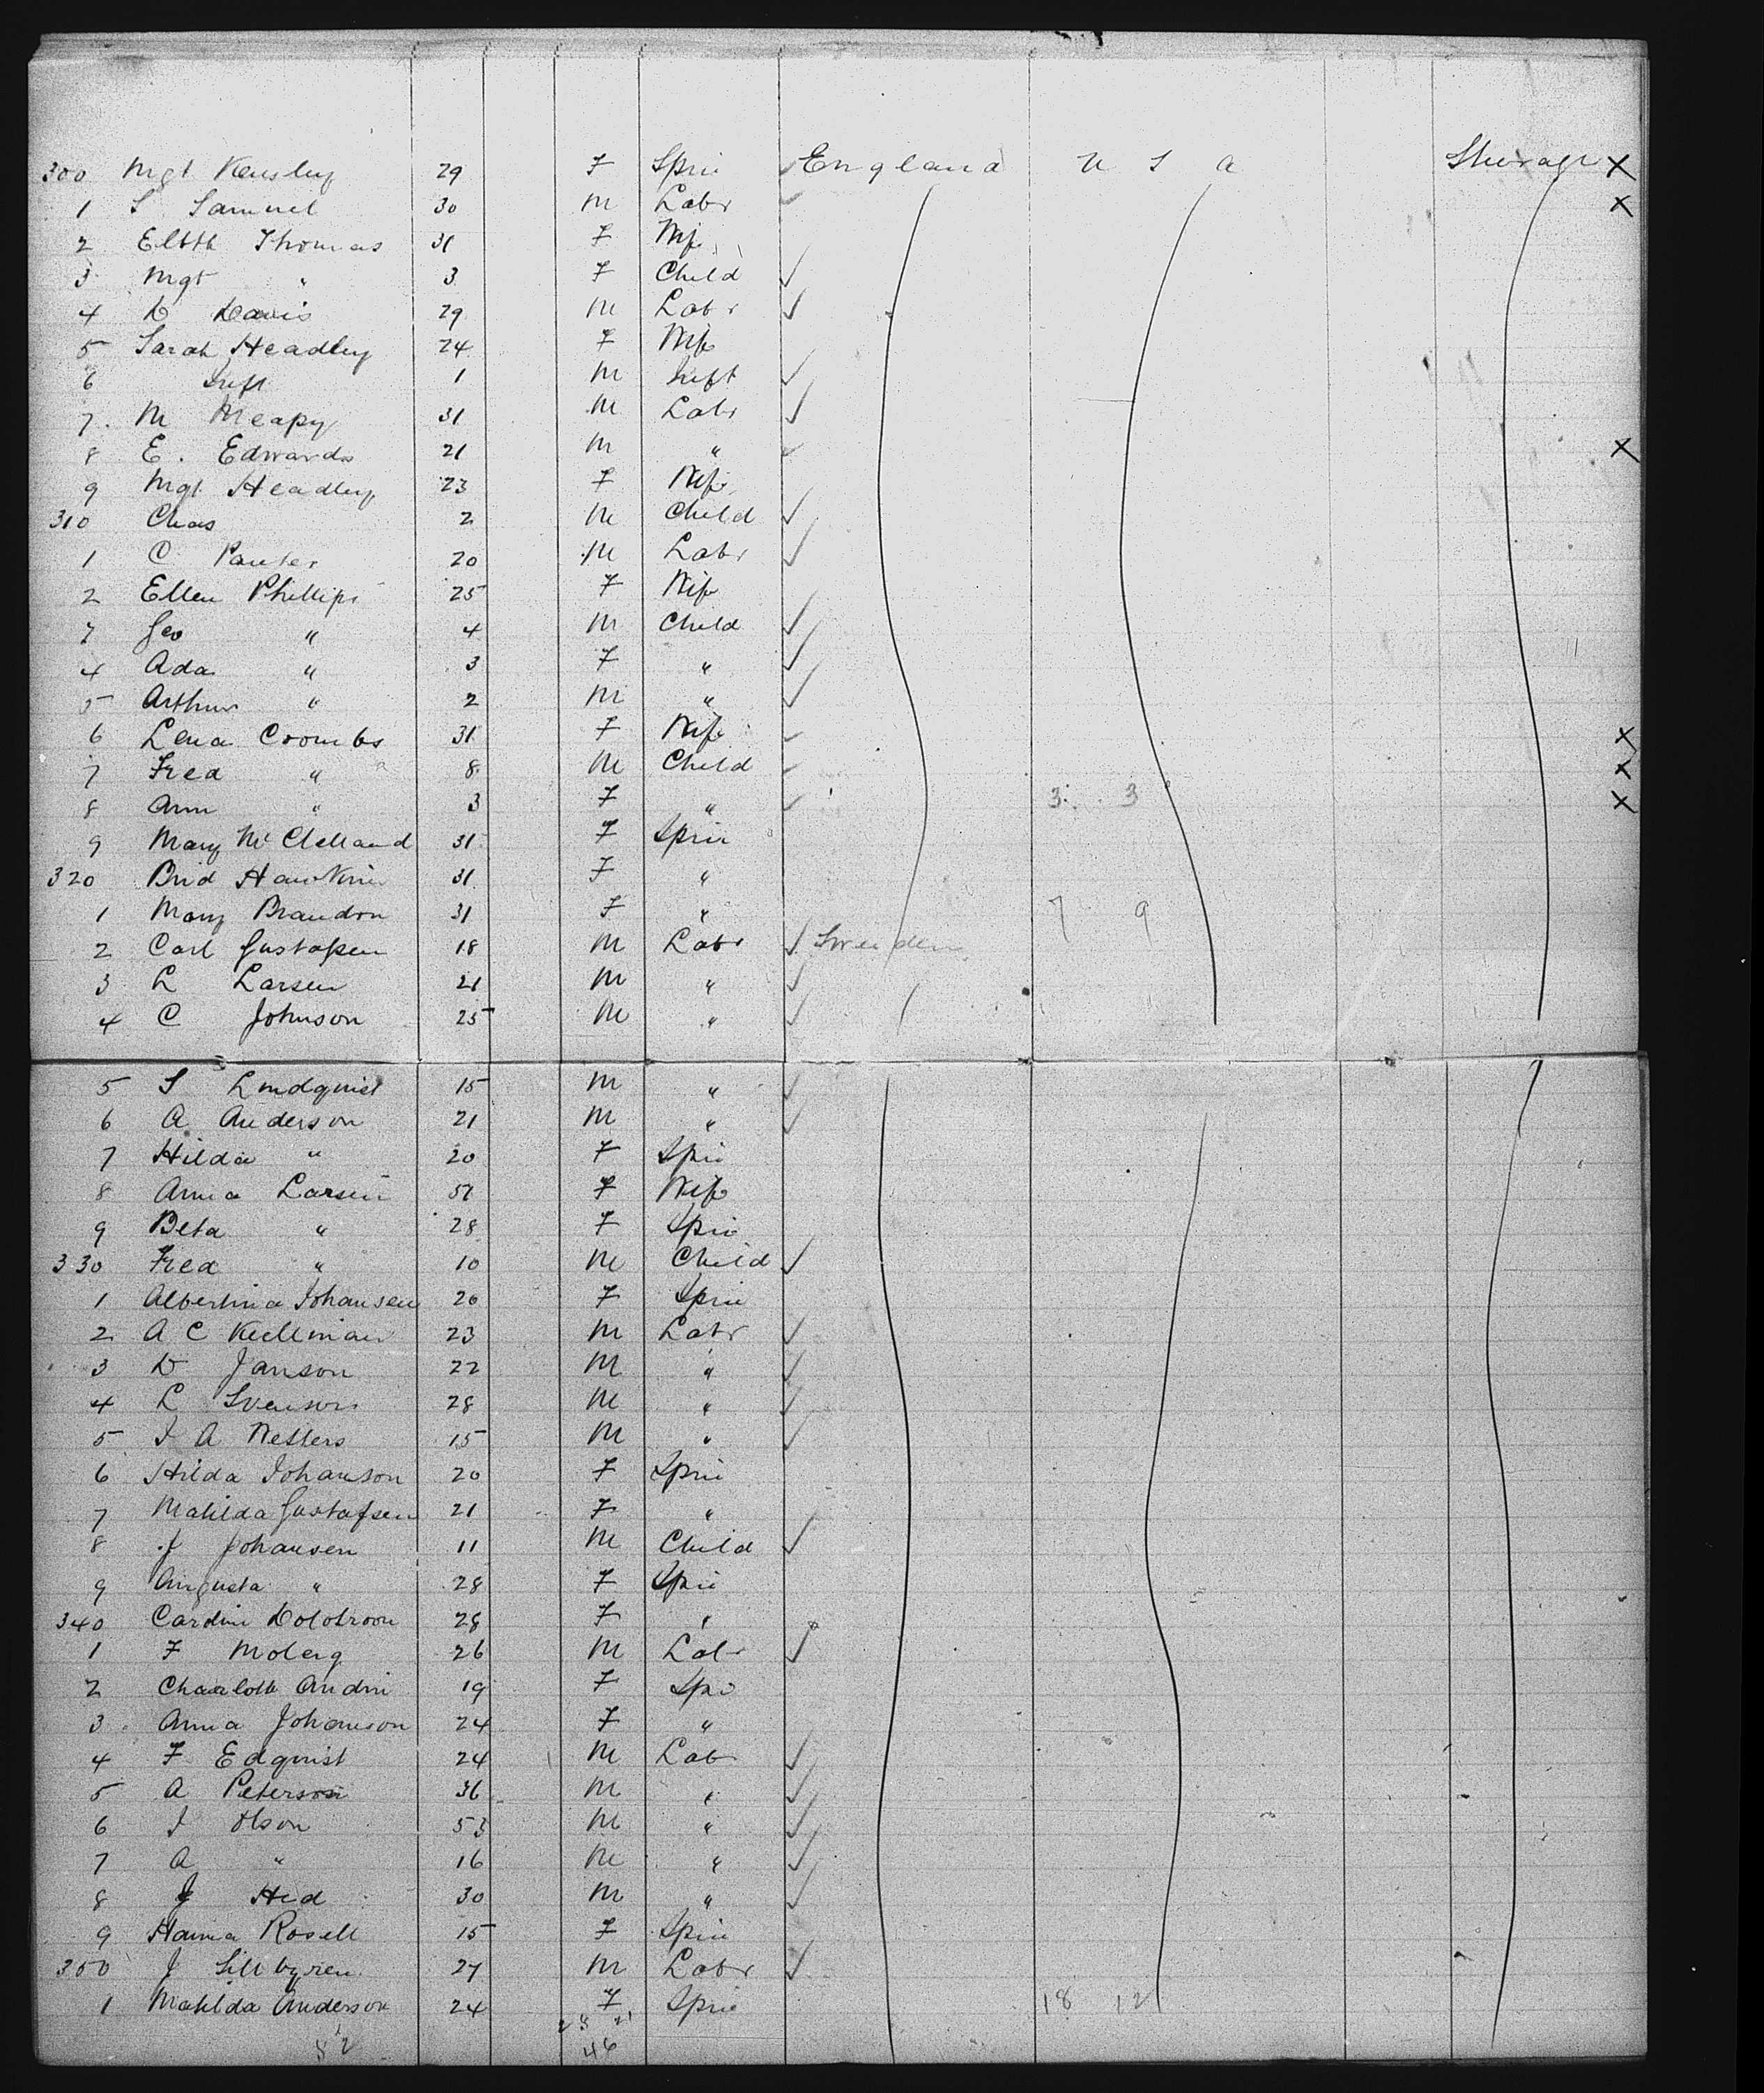 300 Mgt Kensley 29 F Spin England U S A Steerage X
1 S Samuel 30 M Labr X
2 Elbth Thomas 31 F Wife
3 Mgt " 3 F Child
4 D Davis 29 M Labr
5 Sarah Headley 24 F Wife
6 Inft 1 M Inft
7 M Meapy 31 M Labr
8 E. Edwards 21 M " X
9 Mgt Headley 23 F Wife
310 Chas 2 M Child
1 C Panter 20 M Labr
2 Ellen Phillips 25 F Wife
3 Geo " 4 M Child
4 Ada " 3 F "
5 Arthur " 2 M "
6 Lena Coombs 31 F Wife X
7 Fred " 8 M Child X
8 Ann " 3 F " 3 3 X
9 Mary McClelland 31 F Spin
320 Brid Hawkins 31 F "
1 Mary Brandon 31 F " 7 9
2 Carl Gustafsen 18 M Labr Sweden
3 L Larsen 21 M "
4 C Johnson 25 M "
5 S Lindquist 15 M "
6 A Anderson 21 M "
7 Hilda " 20 F Spin
8 Anna Larsen 57 F Wife
9 Beta " 28 F Spin
330 Fred " 10 M Child
1 Albertina Johansen 20 F Spin
2 A C Kullman 23 M Labr
3 D Janson 22 M "
4 L Svenson 28 M "
5 J A Netters 15 M "
6 Hilda Johanson 20 F Spin
7 Matilda Gustafsen 21 F "
8 J Johansen 11 M Child
9 Augusta " 28 F Spin
340 Cardin 28 F "
1 F Moberg 26 M Labr
2 Charlotte Andrin 19 F Spin
3 Anna Johanson 24 F "
4 F Edquist 24 M Lab
5 A Peterson 36 M "
6 J Olson 53 M "
7 A " 16 M "
8 J Hed 30 M "
9 Hanna Rosell 15 F Spin
350 J 27 M Labr
1 Matilda Anderson 24 F Spin 18 12
46